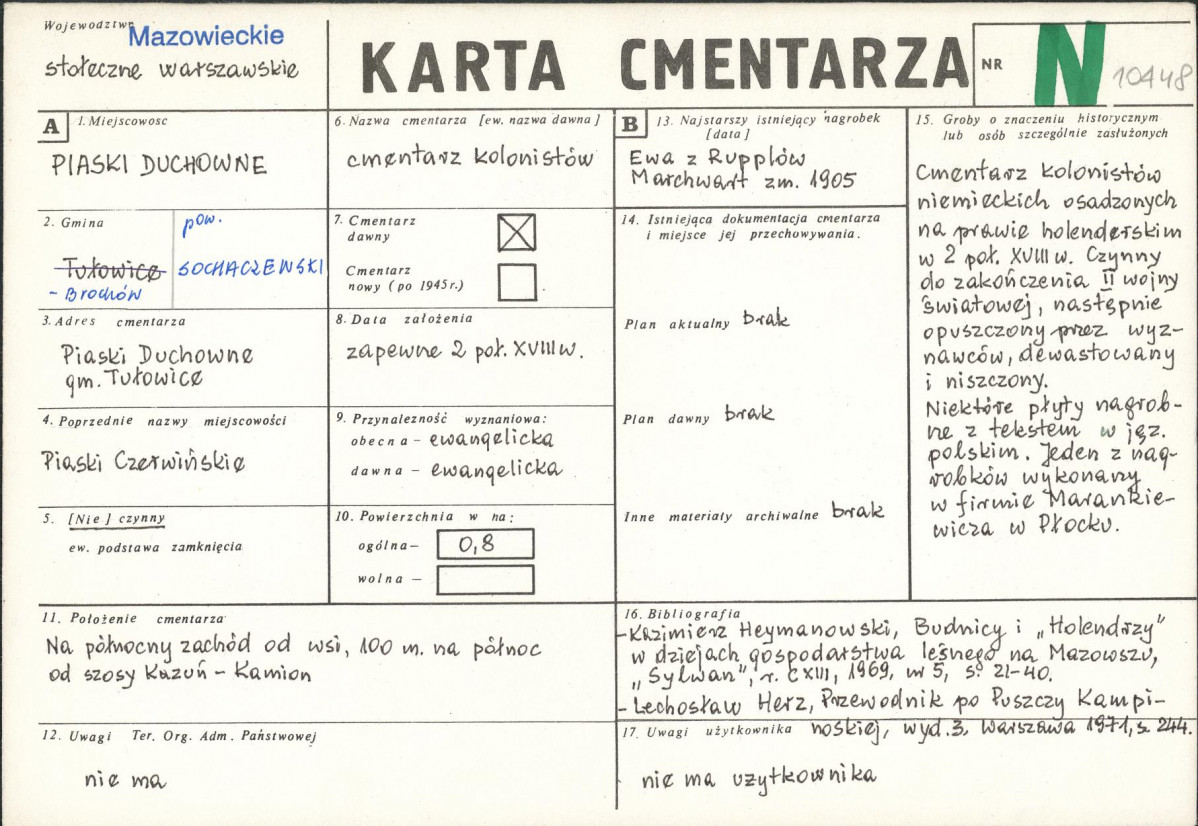 Województwo
Mazowieckie
stołeczne warszawskie
KARTA CMENTARZA
NR
N
10448
A
1. Miejscowosc
PIASKI DUCHOWNE
2. Gmina
Tułowice
- Brochów
pow.
SOCHACZEWSKI
3. Adres cmentarza
Piaski Duchowne
gm. Tułowice
4. Poprzednie nazwy miejscowości
Piaski Czerwińskie
5. [Nie] czynny
ew. podstawa zamknięcia
6. Nazwa cmentarza [ew. nazwa dawna]
cmentarz kolonistów
7. Cmentarz
dawny
Cmentarz
nowy (po 1945 r.)
8. Data założenia
zapewne 2 poł. XVIII w.
9. Przynalezność wyznaniowa:
obecna - ewangelicka
dawna - ewangelicka
10. Powierzchnia w ha:
ogólna - 0,8
wolna -
B
13. Najstarszy istniejący nagrobek
[data]
Ewa z Rupplów
Marchwart zm. 1905
14. Istniejąca dokumentacja cmentarza
i miejsce jej przechowywania.
Plan aktualny brak
Plan dawny brak
Inne materiały archiwalne brak
15. Groby o znaczeniu historycznym
lub osób szczególnie zasłużonych
Cmentarz kolonistów
niemieckich osadzonych
na prawie holenderskim
w 2 poł. XVIII w. Czynny
do zakończenia II wojny
światowej, następnie
opuszczony przez wyz-
nawców, dewastowany
i niszczony.
Niektóre płyty nagrob-
ne z tekstem w jęz.
polskim. Jeden z nag-
robków wykonany
w firmie Marankie-
wicza w Płocku.
11. Położenie cmentarza
Na północny zachód od wsi, 100 m. na północ
od szosy Kazuń - Kamion
12. Uwagi Ter. Org. Adm. Państwowej
nie ma
16. Bibliografia
- Kazimierz Heymanowski, Budnicy i „Holendrzy"
w dziejach gospodarstwa leśnego na Mazowszu,
„Sylwan", r. CXIII, 1969, nr 5, s. 21-40.
- Lechosław Herz, Przewodnik po Puszczy Kampi-
noskiej, wyd. 3, Warszawa 1971, s. 244.
17. Uwagi użytkownika
nie ma uzytkownika